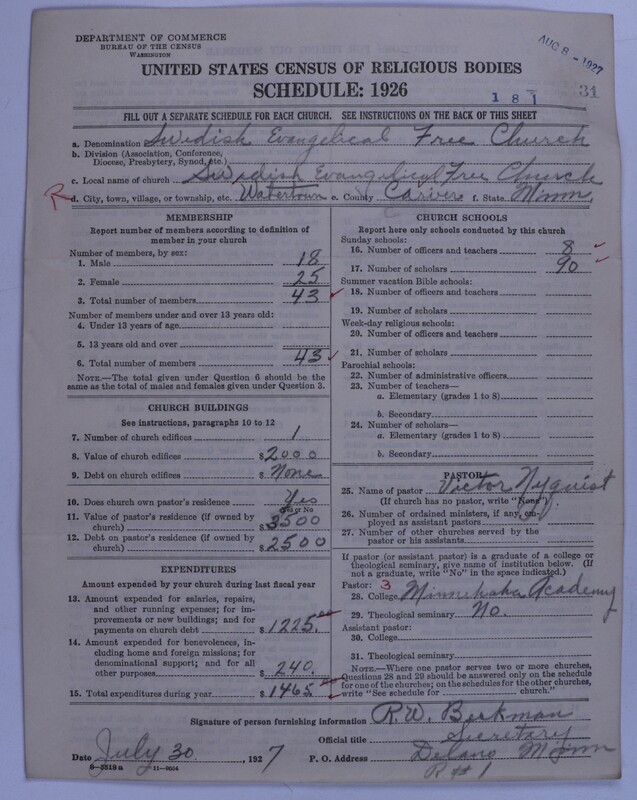 DEPARTMENT OF COMMERCE
BUREAU OF THE CENSUS
WASHINGTON
AUG 8 - 1927
UNITED STATES CENSUS OF RELIGIOUS BODIES
SCHEDULE: 1926
1 8 1
31
FILL OUT A SEPARATE SCHEDULE FOR EACH CHURCH. SEE INSTRUCTIONS ON THE BACK OF THIS SHEET
a. Denomination Swedish Evangelical Free Church
b. Division (Association, Conference, Diocese, Presbytery, Synod, etc.)
c. Local name of church Swedish Evangelical Free Church
R d. City, town, village, or township, etc. Watertown e. County Carver f. State Minn.
MEMBERSHIP
Report number of members according to definition of member in your church
Number of members, by sex:
1. Male 18
2. Female 25
3. Total number of members 43
Number of members under and over 13 years old:
4. Under 13 years of age
5. 13 years old and over
6. Total number of members 43
NOTE.—The total given under Question 6 should be the same as the total of males and females given under Question 3.
CHURCH BUILDINGS
See instructions, paragraphs 10 to 12
7. Number of church edifices 1
8. Value of church edifices $ 2000
9. Debt on church edifices $ None
10. Does church own pastor's residence Yes
Yes or No
11. Value of pastor's residence (if owned by church) $ 3500
12. Debt on pastor's residence (if owned by church) $ 2500
EXPENDITURES
Amount expended by your church during last fiscal year
13. Amount expended for salaries, repairs, and other running expenses; for improvements or new buildings; and for payments on church debt $ 1225.
14. Amount expended for benevolences, including home and foreign missions; for denominational support; and for all other purposes $ 240.
15. Total expenditures during year $ 1465
CHURCH SCHOOLS
Report here only schools conducted by this church
Sunday schools:
16. Number of officers and teachers 8
17. Number of scholars 90
Summer vacation Bible schools:
18. Number of officers and teachers
19. Number of scholars
Week-day religious schools:
20. Number of officers and teachers
21. Number of scholars
Parochial schools:
22. Number of administrative officers
23. Number of teachers—
a. Elementary (grades 1 to 8)
b. Secondary
24. Number of scholars—
a. Elementary (grades 1 to 8)
b. Secondary
PASTOR
25. Name of pastor Victor Nyquist
(If church has no pastor, write "None")
26. Number of ordained ministers, if any, employed as assistant pastors
27. Number of other churches served by the pastor or his assistants
If pastor (or assistant pastor) is a graduate of a college or theological seminary, give name of institution below. (If not a graduate, write "No" in the space indicated.)
Pastor: 3
28. College Minnehaha Academy
29. Theological seminary No.
Assistant pastor:
30. College
31. Theological seminary
NOTE.—Where one pastor serves two or more churches, Questions 28 and 29 should be answered only on the schedule for one of the churches; on the schedules for the other churches, write "See schedule for church."
Signature of person furnishing information R.W. Beckman
Official title Secretary
Date July 30, 1927 P. O. Address Delano Minn
R # 1
8—3518 a 11—9504